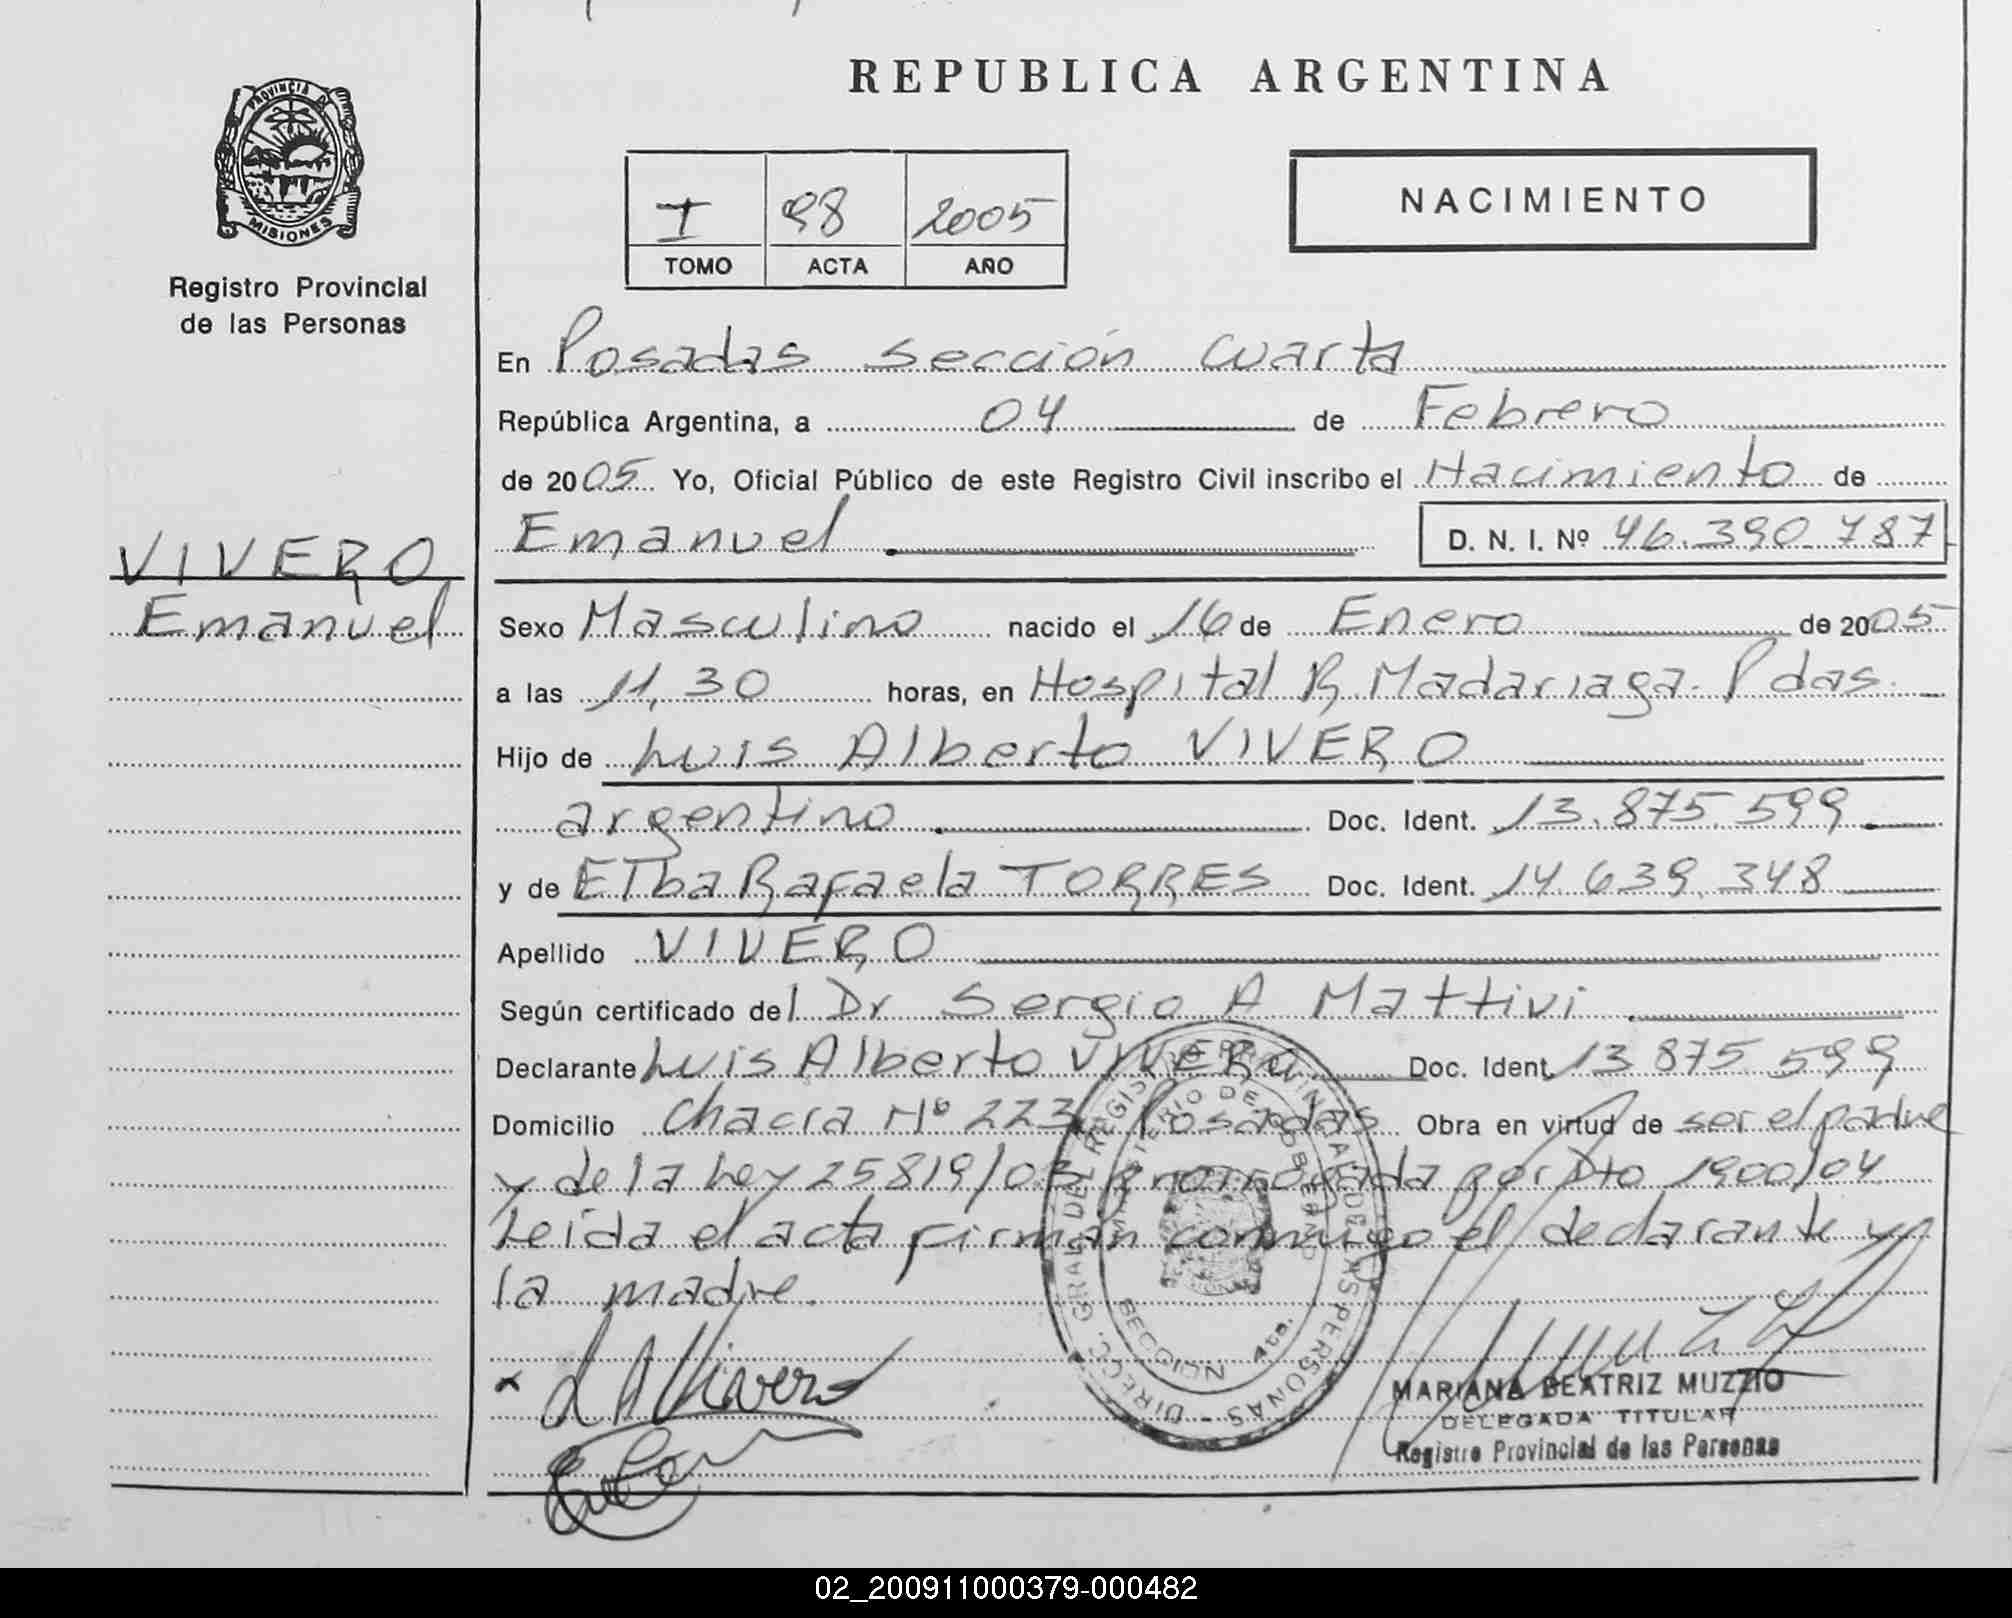 REPUBLICA ARGENTINA
PROVINCIA D
MISIONES
Registro Provincial
de las Personas
I 98 2005
TOMO ACTA AÑO
NACIMIENTO
En Posadas sección cuarta
República Argentina, a 04 de Febrero
de 2005 Yo, Oficial Público de este Registro Civil inscribo el Nacimiento de
Emanuel D. N. I. Nº 46.390.787
VIVERO
Emanuel
Sexo Masculino nacido el 16 de Enero de 2005
a las 11,30 horas, en Hospital R. Madariaga. Pdas.
Hijo de Luis Alberto VIVERO
argentino Doc. Ident. 13.875.599
y de Elba Rafaela TORRES Doc. Ident. 14.639.348
Apellido VIVERO
Según certificado del Dr Sergio A Mattivi
Declarante Luis Alberto VIVERO Doc. Ident. 13.875.599
Domicilio Chacra Nº 223 Posadas Obra en virtud de ser el padre
y de la Ley 25819/03 prorrogada por Dto 1900/04
Leída el acta firman conmigo el declarante y
la madre.
DIRECC. GRAL. DEL REGISTRO PROVINCIAL DE LAS PERSONAS
MINISTERIO DE GOBIERNO
SECCION 4ta.
L A Vivero
MARIANA BEATRIZ MUZZIO
DELEGADA TITULAR
Registro Provincial de las Personas
02_200911000379-000482